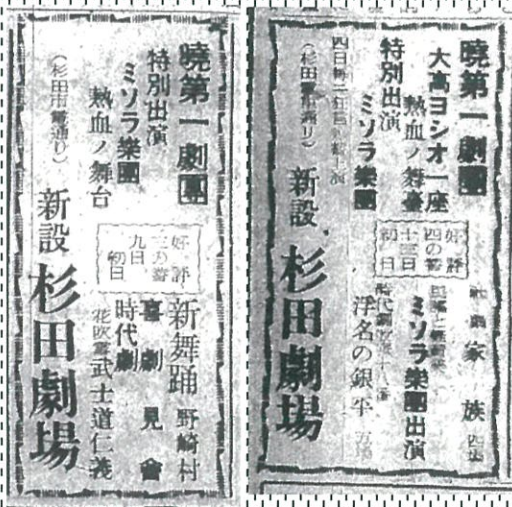 暁第一劇團
特別出演
ミソラ樂團
熱血ノ舞台
(杉田市電通り)
新設
杉田劇場
好評
三の替
九日
初日
新舞踊 野崎村
喜劇 見合
時代劇
花吹雪 武士道仁義
暁第一劇團
大高ヨシオ一座
熱血ノ舞臺
特別出演
ミソラ樂團
(杉田電車通り)
新設
杉田劇場
好評
四の替
十三日
初日
家族
ミソラ樂團出演
浮名の銀平